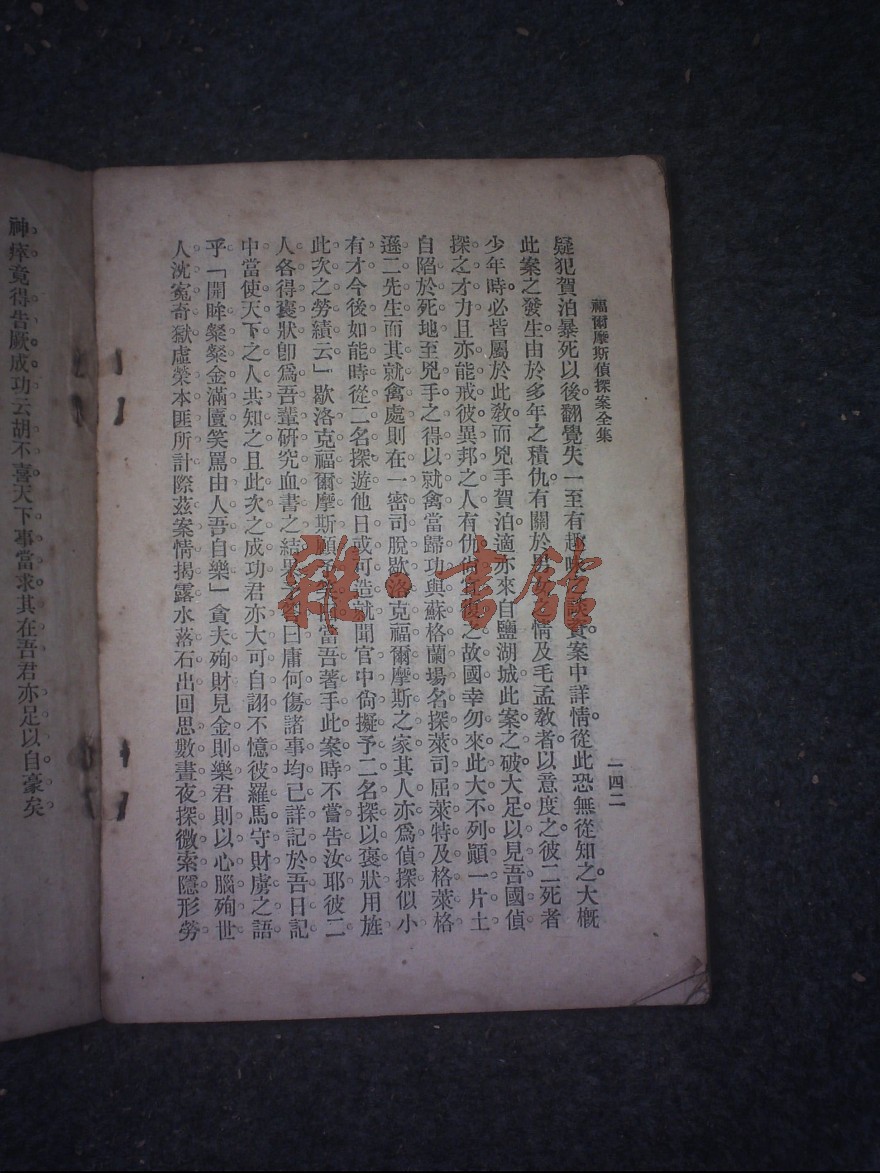 福爾摩斯偵探案全集
二四二
疑犯賀泊暴死以後。翻覺失一至有趣味之談資。案中詳情。從此恐無從知之。大概
此案之發生。由於多年之積仇。有關於男女情及毛孟教者。以意度之。彼二死者
少年時必皆屬於此教。而兇手賀泊。適亦來自鹽湖城。此案之破。大足以見吾國偵
探之才力。且亦能戒彼異邦之人。有仇尙宜復之故國。幸勿來此大不列顚一片土。
自陷於死地。至兇手之得以就禽。當歸功與蘇格蘭場名探萊司屈萊特及格萊格
遜二先生。而其就禽處。則在一密司脫歇洛克福爾摩斯之家。其人亦爲偵探。似小
有才。今後如能時從二名探遊。他日或可造就。聞官中尙擬予二名探以褒狀。用旌
此次之勞績云」歇洛克福爾摩斯顧予笑曰。當吾著手此案時。不嘗告汝耶。彼二
人各得褒狀。卽爲吾輩研究血書之結果。予曰。庸何傷。諸事均已詳記於吾日記
中。當使天下之人共知之。且此次之成功。君亦大可自詡。不憶彼羅馬守財虜之語
乎。「開眸粲粲金滿匵。笑罵由人吾自樂」貪夫殉財。見金則樂。君則以心腦殉世
人沈寃奇獄。虛榮本匪所計。際茲案情揭露。水落石出。回思數晝夜探微索隱。形勞
神瘁。竟得告厥成功。云胡不喜。天下事當求其在吾。君亦足以自豪矣。
雜·書館